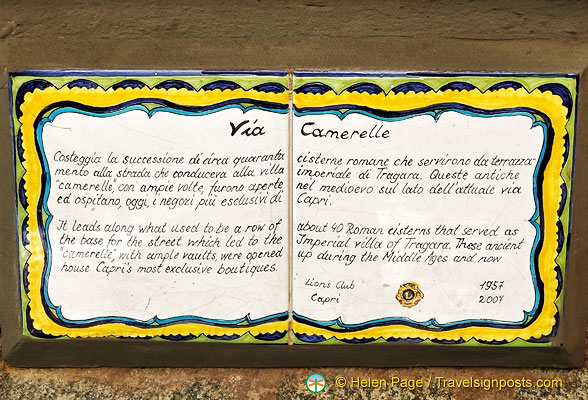 Via Camerelle
Costeggia la successione di circa quaranta cisterne romane che servirono da terrazza-
mento alla strada che conduceva alla villa imperiale di Tragara. Queste antiche
"camerelle, con ampie volte, furono aperte nel medioevo sul lato dell'attuale via
ed ospitano, oggi, i negozi più esclusivi di Capri.
It leads along what used to be a row of about 40 Roman cisterns that served as
the base for the street which led to the Imperial villa of Tragara. These ancient
"camerelle," with ample vaults, were opened up during the Middle Ages and now
house Capri's most exclusive boutiques.
Lions Club 1957
Capri 2007
© Helen Page / Travelsignposts.com